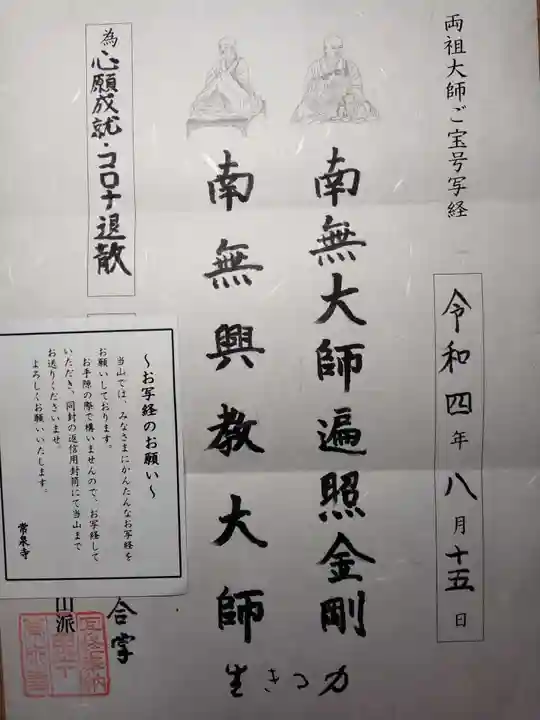 両祖大師ご宝号写経
令和四年八月十五日
南無大師遍照金剛
南無興教大師
生きる力
為
心願成就・コロナ退散
合掌
山派
～お写経のお願い～
当山では、みなさまにかんたんなお写経を
お願いしております。
お手隙の際で構いませんので、お写経して
いただき、同封の返信用封筒にて当山まで
お送りくださいませ。
よろしくお願いいたします。
常泉寺